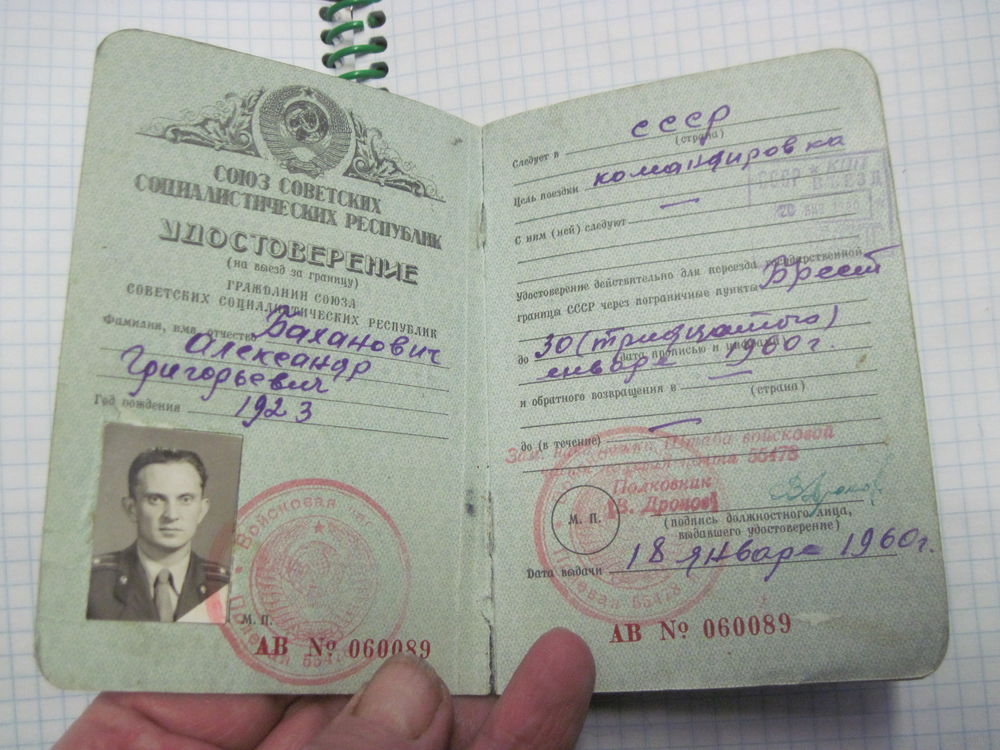 СОЮЗ СОВЕТСКИХ
СОЦИАЛИСТИЧЕСКИХ РЕСПУБЛИК
УДОСТОВЕРЕНИЕ
(на выезд за границу)
ГРАЖДАНИН СОЮЗА
СОВЕТСКИХ СОЦИАЛИСТИЧЕСКИХ РЕСПУБЛИК
Фамилия, имя, отчество Баханович
Александр
Григорьевич
Год рождения 1923
Войсковая
М. П.
АВ № 060089
Следует в СССР
(страна)
Цель поездки командировка
СССР ВЪЕЗД
С ним (ней) следуют —
Удостоверение действительно для переезда государственной
границы СССР через пограничные пункты Брест
до 30 (тридцатого)
(дата прописью и цифрами)
января 1960 г.
и обратного возвращения в —
(страна)
до (в течение) —
Зам. начальника Штаба войсковой
почта 55478
Полковник
(В. Дронов)
М. П.
(подпись должностного лица,
выдавшего удостоверение)
Дата выдачи 18 января 1960 г.
АВ № 060089